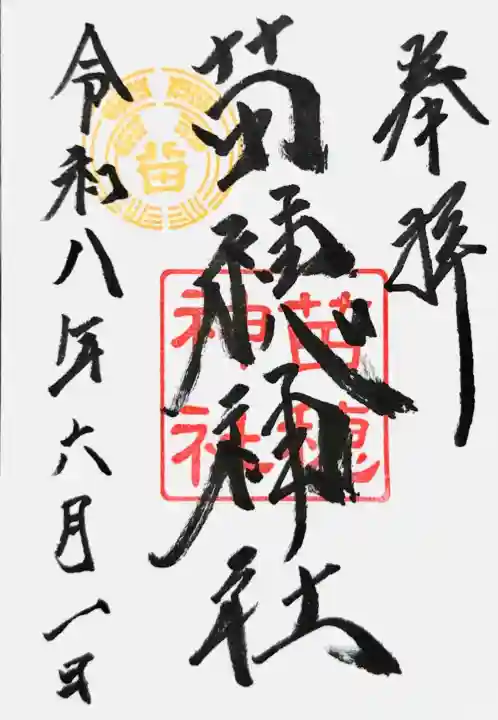 奉拝
苗穂神社
苗穂
神社
苗
令和八年六月一日